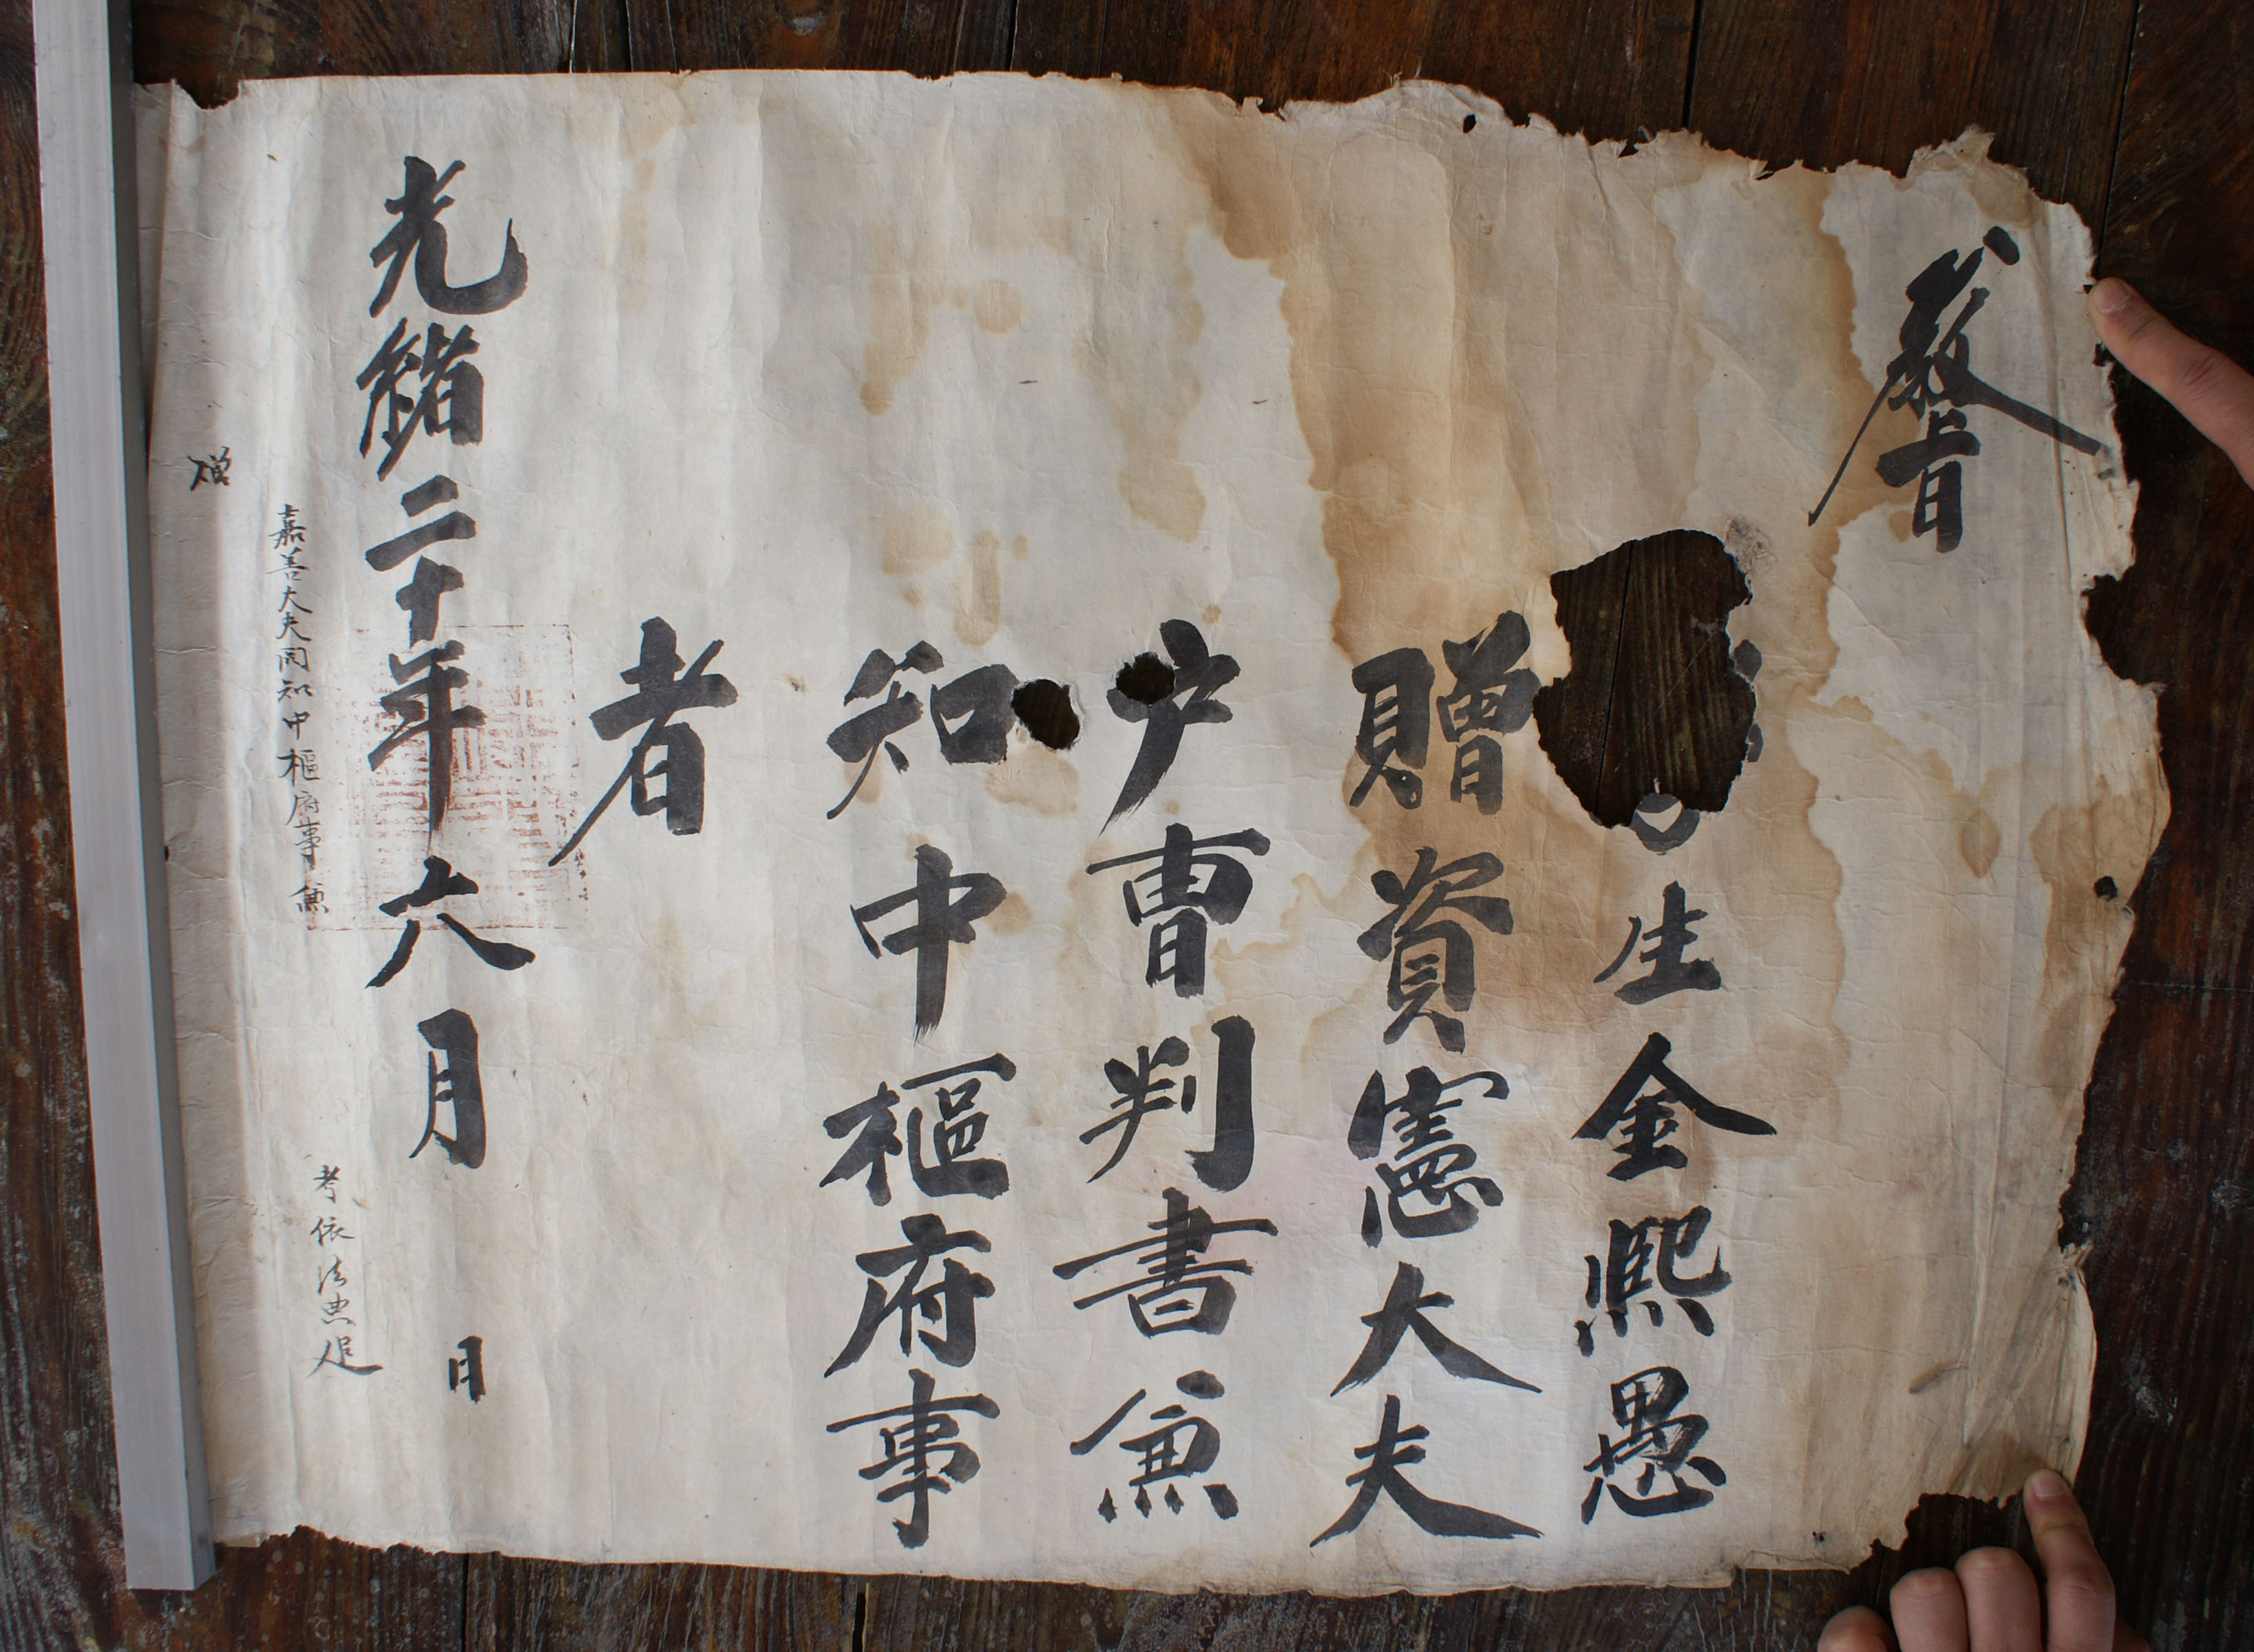 敎旨
生金熙愚
贈資憲大夫
户曺判書兼
知中樞府事
者
光緖二十年六月 日
嘉善大夫同知中樞府事兼
考依法典追
贈